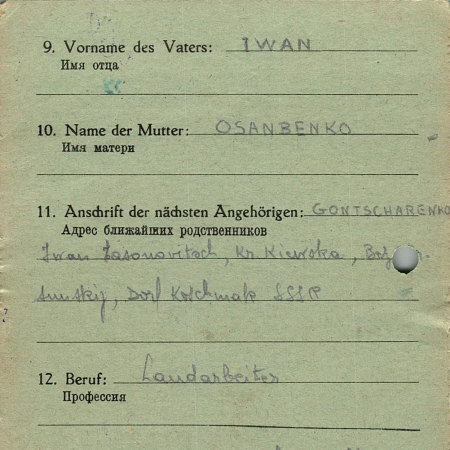 9. Vorname des Vaters: IWAN
Имя отца
10. Name der Mutter: OSANBENKO
Имя матери
11. Anschrift der nächsten Angehörigen: GONTSCHARENKO
Адрес ближайших родственников
Iwan Kr. Kiewska,
Dorf Koschmak SSSR
12. Beruf: Landarbeiter
Профессия